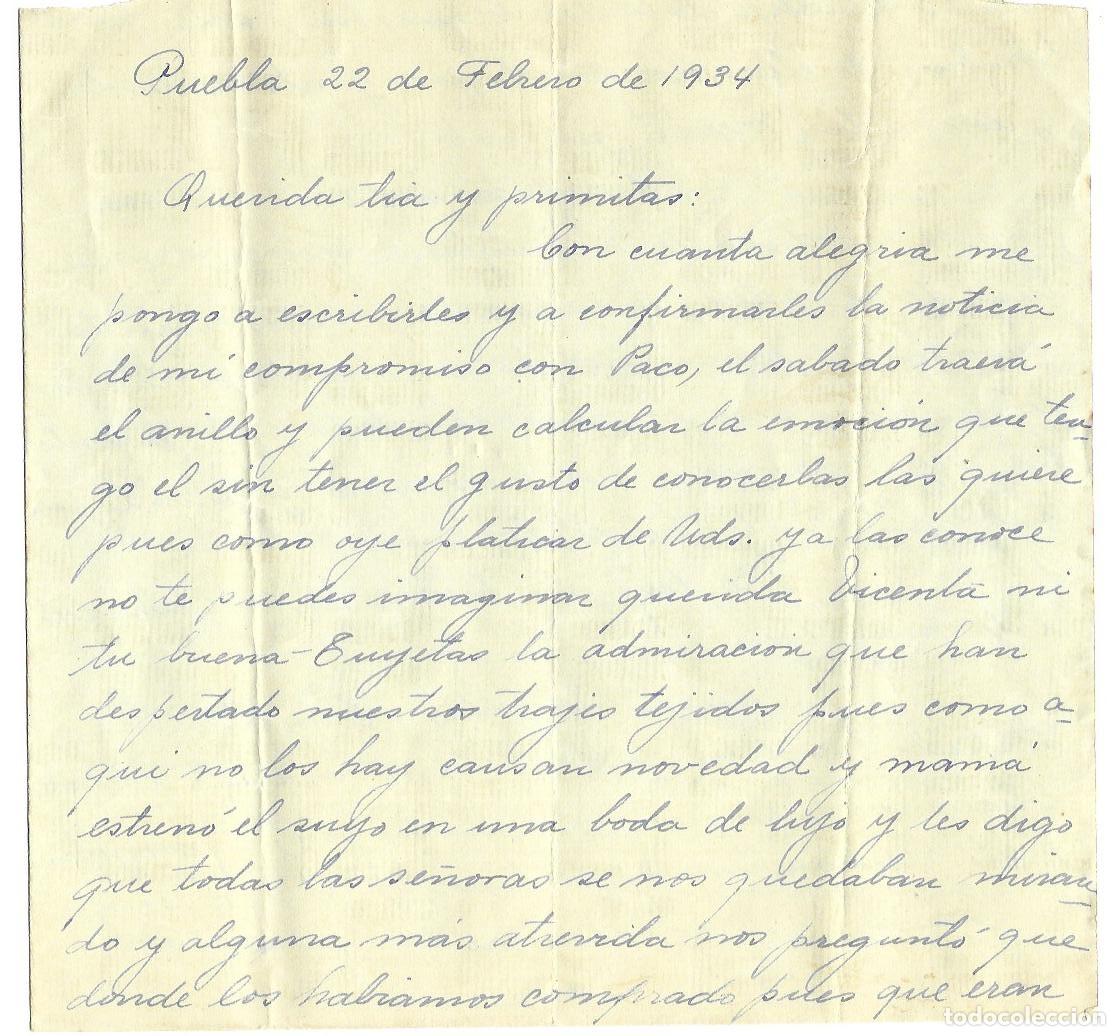 Puebla 22 de Febrero de 1934
Querida tia y primitas:
Con cuanta alegria me
pongo a escribirles y a confirmarles la noticia
de mi compromiso con Paco, el sabado traerá
el anillo y pueden calcular la emoción que ten-
go el sin tener el gusto de conocerlas las quiere
pues como oye platicar de Uds. ya las conoce
no te puedes imaginar querida Vicenta ni
tu buena la admiracion que han
despertado nuestros trajes tejidos pues como a-
qui no los hay causan novedad y mamá
estrenó el suyo en una boda de lujo y les digo
que todas las señoras se nos quedaban miran-
do y alguna más atrevida nos preguntó que
donde los habiamos comprado pues que eran
todocoleccion